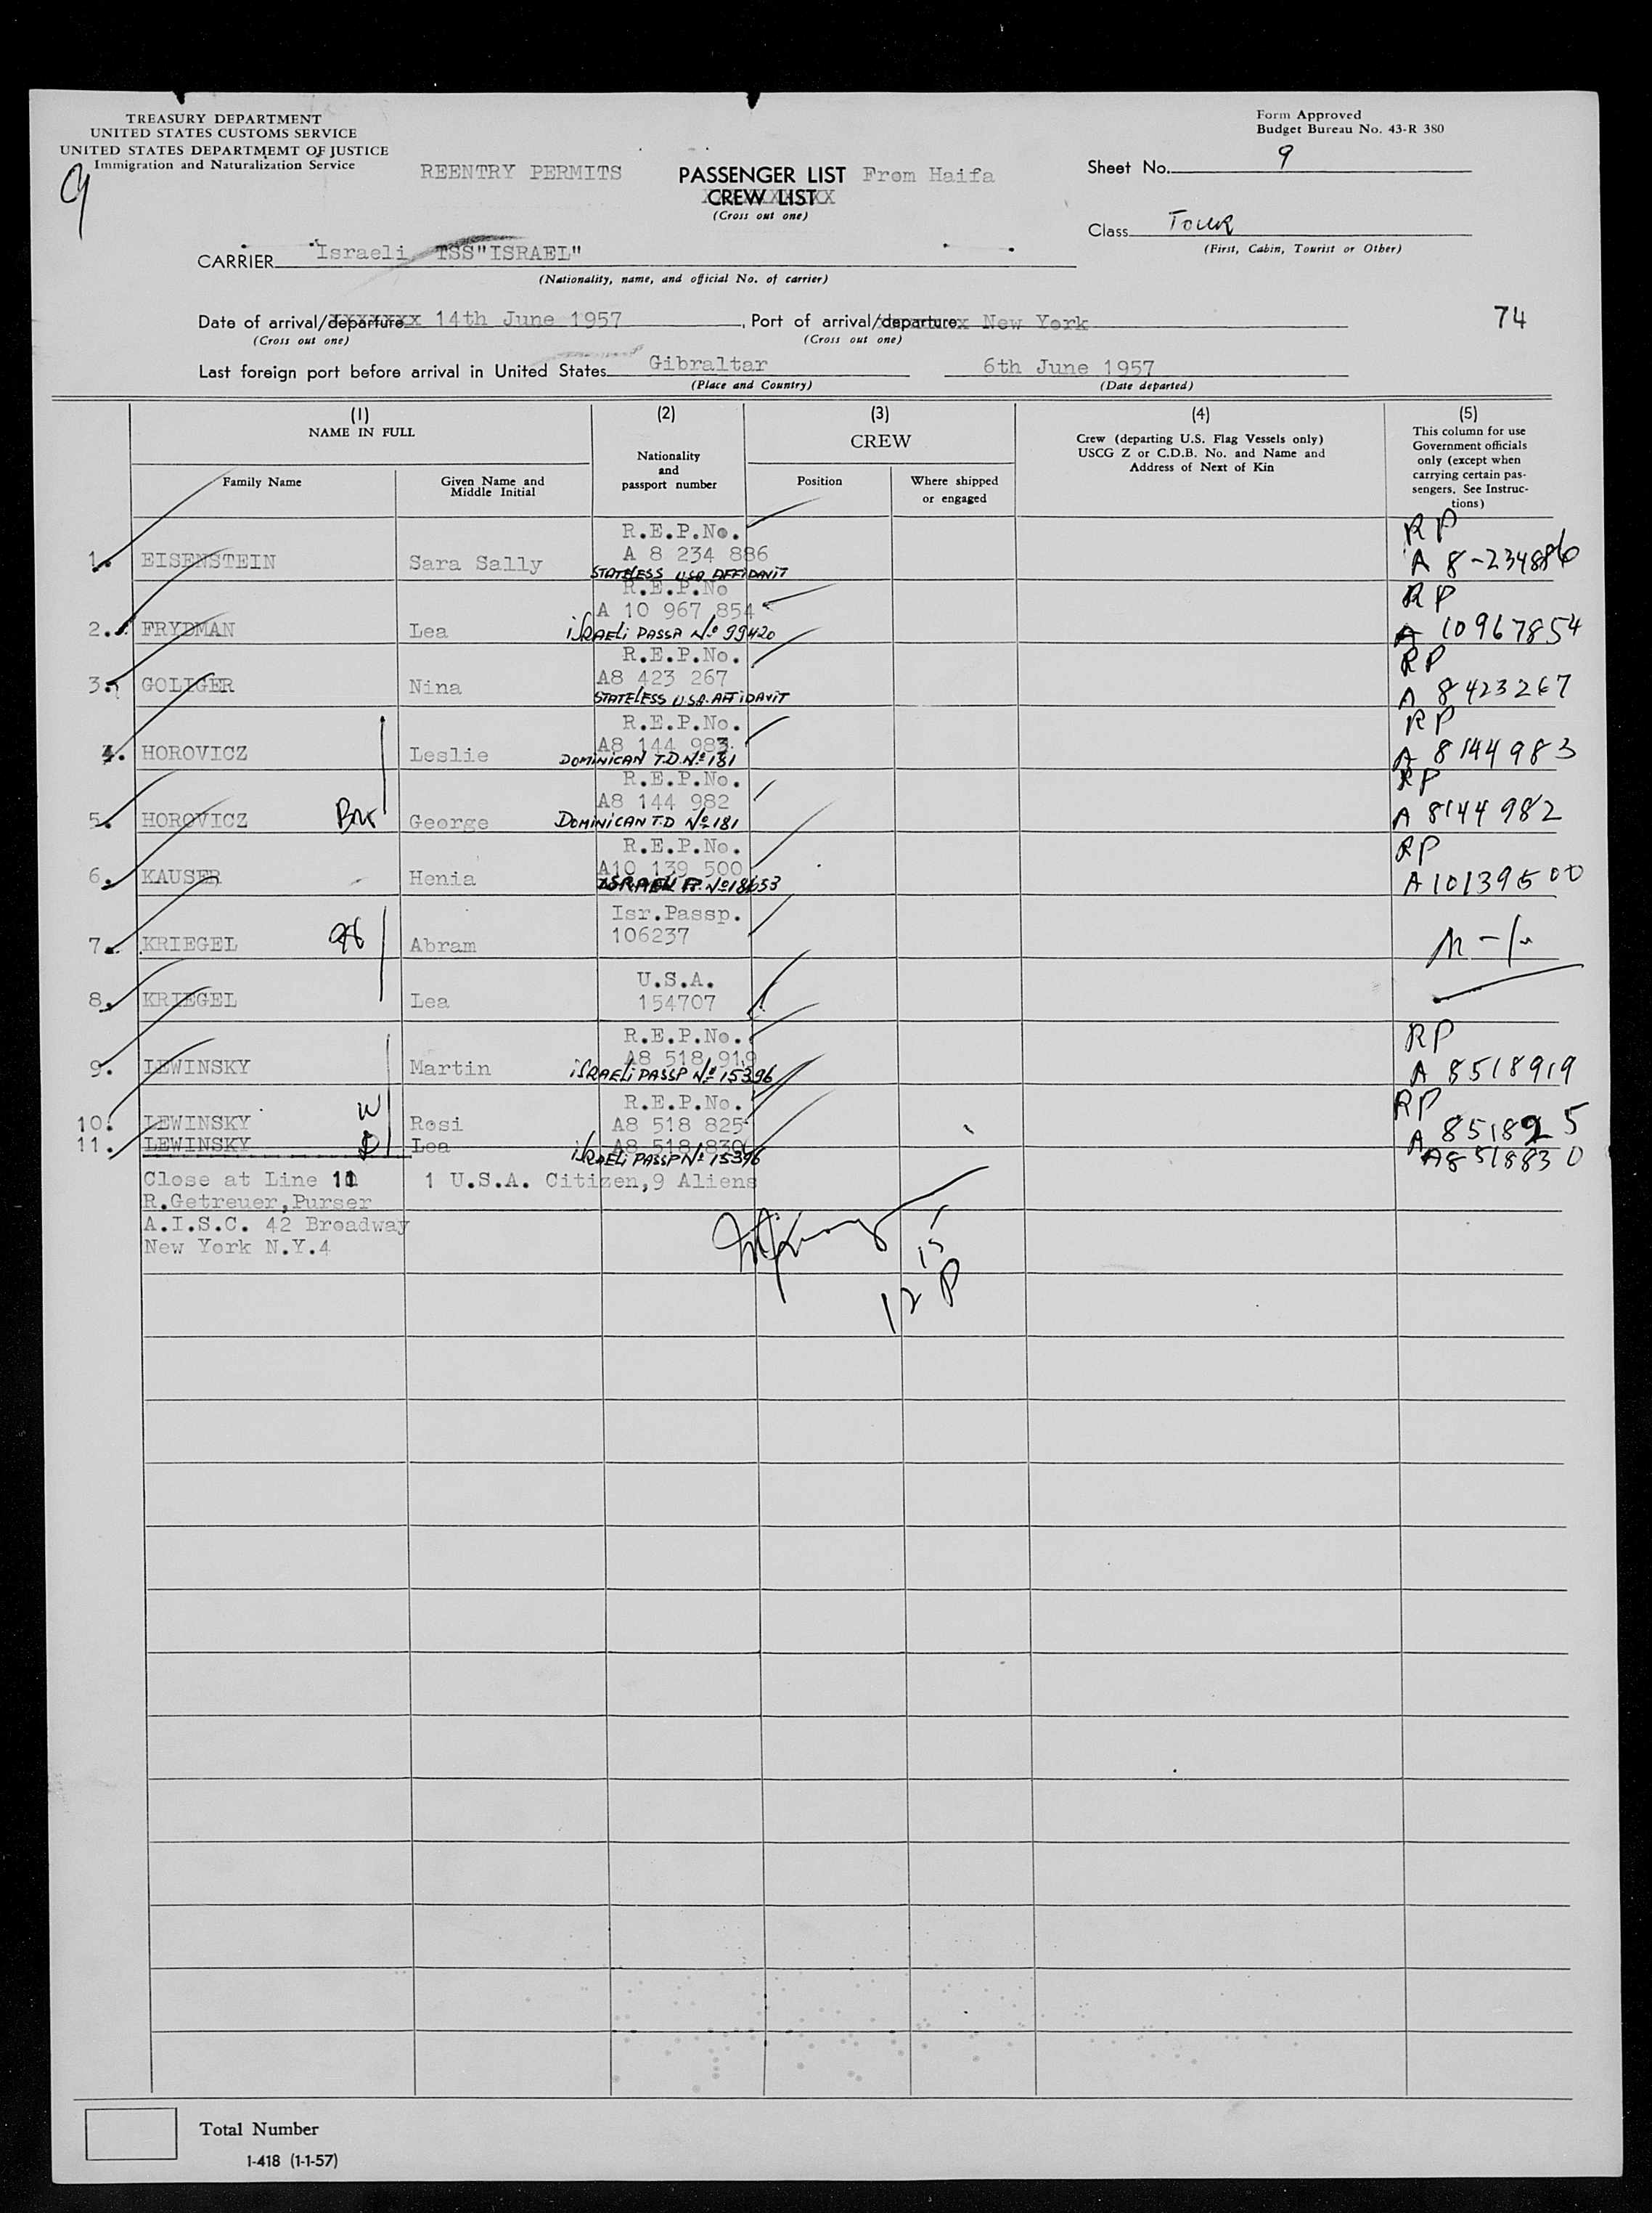 TREASURY DEPARTMENT
UNITED STATES CUSTOMS SERVICE
UNITED STATES DEPARTMEMT OF JUSTICE
Immigration and Naturalization Service
9
REENTRY PERMITS
PASSENGER LIST From Haifa
CREW LIST
(Cross out one)
Form Approved
Budget Bureau No. 43-R 380
Sheet No. 9
Class Tour
(First, Cabin, Tourist or Other)
CARRIER Israeli TSS"ISRAEL"
(Nationality, name, and official No. of carrier)
Date of arrival/departure 14th June 1957, Port of arrival/departure New York
(Cross out one) (Cross out one)
74
Last foreign port before arrival in United States Gibraltar 6th June 1957
(Place and Country) (Date departed)
(1)
NAME IN FULL
Family Name
Given Name and
Middle Initial
(2)
Nationality
and
passport number
(3)
CREW
Position
Where shipped
or engaged
(4)
Crew (departing U.S. Flag Vessels only)
USCG Z or C.D.B. No. and Name and
Address of Next of Kin
(5)
This column for use
Government officials
only (except when
carrying certain pas-
sengers. See Instruc-
tions)
R.E.P.No. RP
1. EISENSTEIN Sara Sally A 8 234 886 A 8-234886
STATELESS USA AFFIDAVIT
R.E.P.No RP
A 10 967 854
2. FRYDMAN Lea ISRAELI PASSP No 99420 A 10967854
R.E.P.No. RP
3. GOLIGER Nina A8 423 267 A 8423267
STATELESS U.S.A. AFFIDAVIT
R.E.P.No. RP
4. HOROVICZ Leslie A8 144 983 A 8144983
DOMINICAN T.D. No 181
R.E.P.No. RP
A8 144 982
5. HOROVICZ George DOMINICAN T.D No 181 A 8144982
R.E.P.No. RP
6. KAUSER Henia A10 139 500 A10139500
ISRAELI P. No 18653
Isr.Passp.
7. KRIEGEL Abram 106237
U.S.A.
8. KRIEGEL Lea 154707
R.E.P.No. RP
A8 518 919
9. LEWINSKY Martin ISRAELI PASSP No 15396 A 8518919
R.E.P.No. RP
10. LEWINSKY W Rosi A8 518 825 A 8518925
11. LEWINSKY D Lea A8 518 830 A8518830
ISRAELI PASSP No 15396
Close at Line 11 1 U.S.A. Citizen,9 Aliens
R.Getreuer,Purser
A.I.S.C. 42 Broadway
New York N.Y.4
15
12 P
Total Number
I-418 (1-1-57)